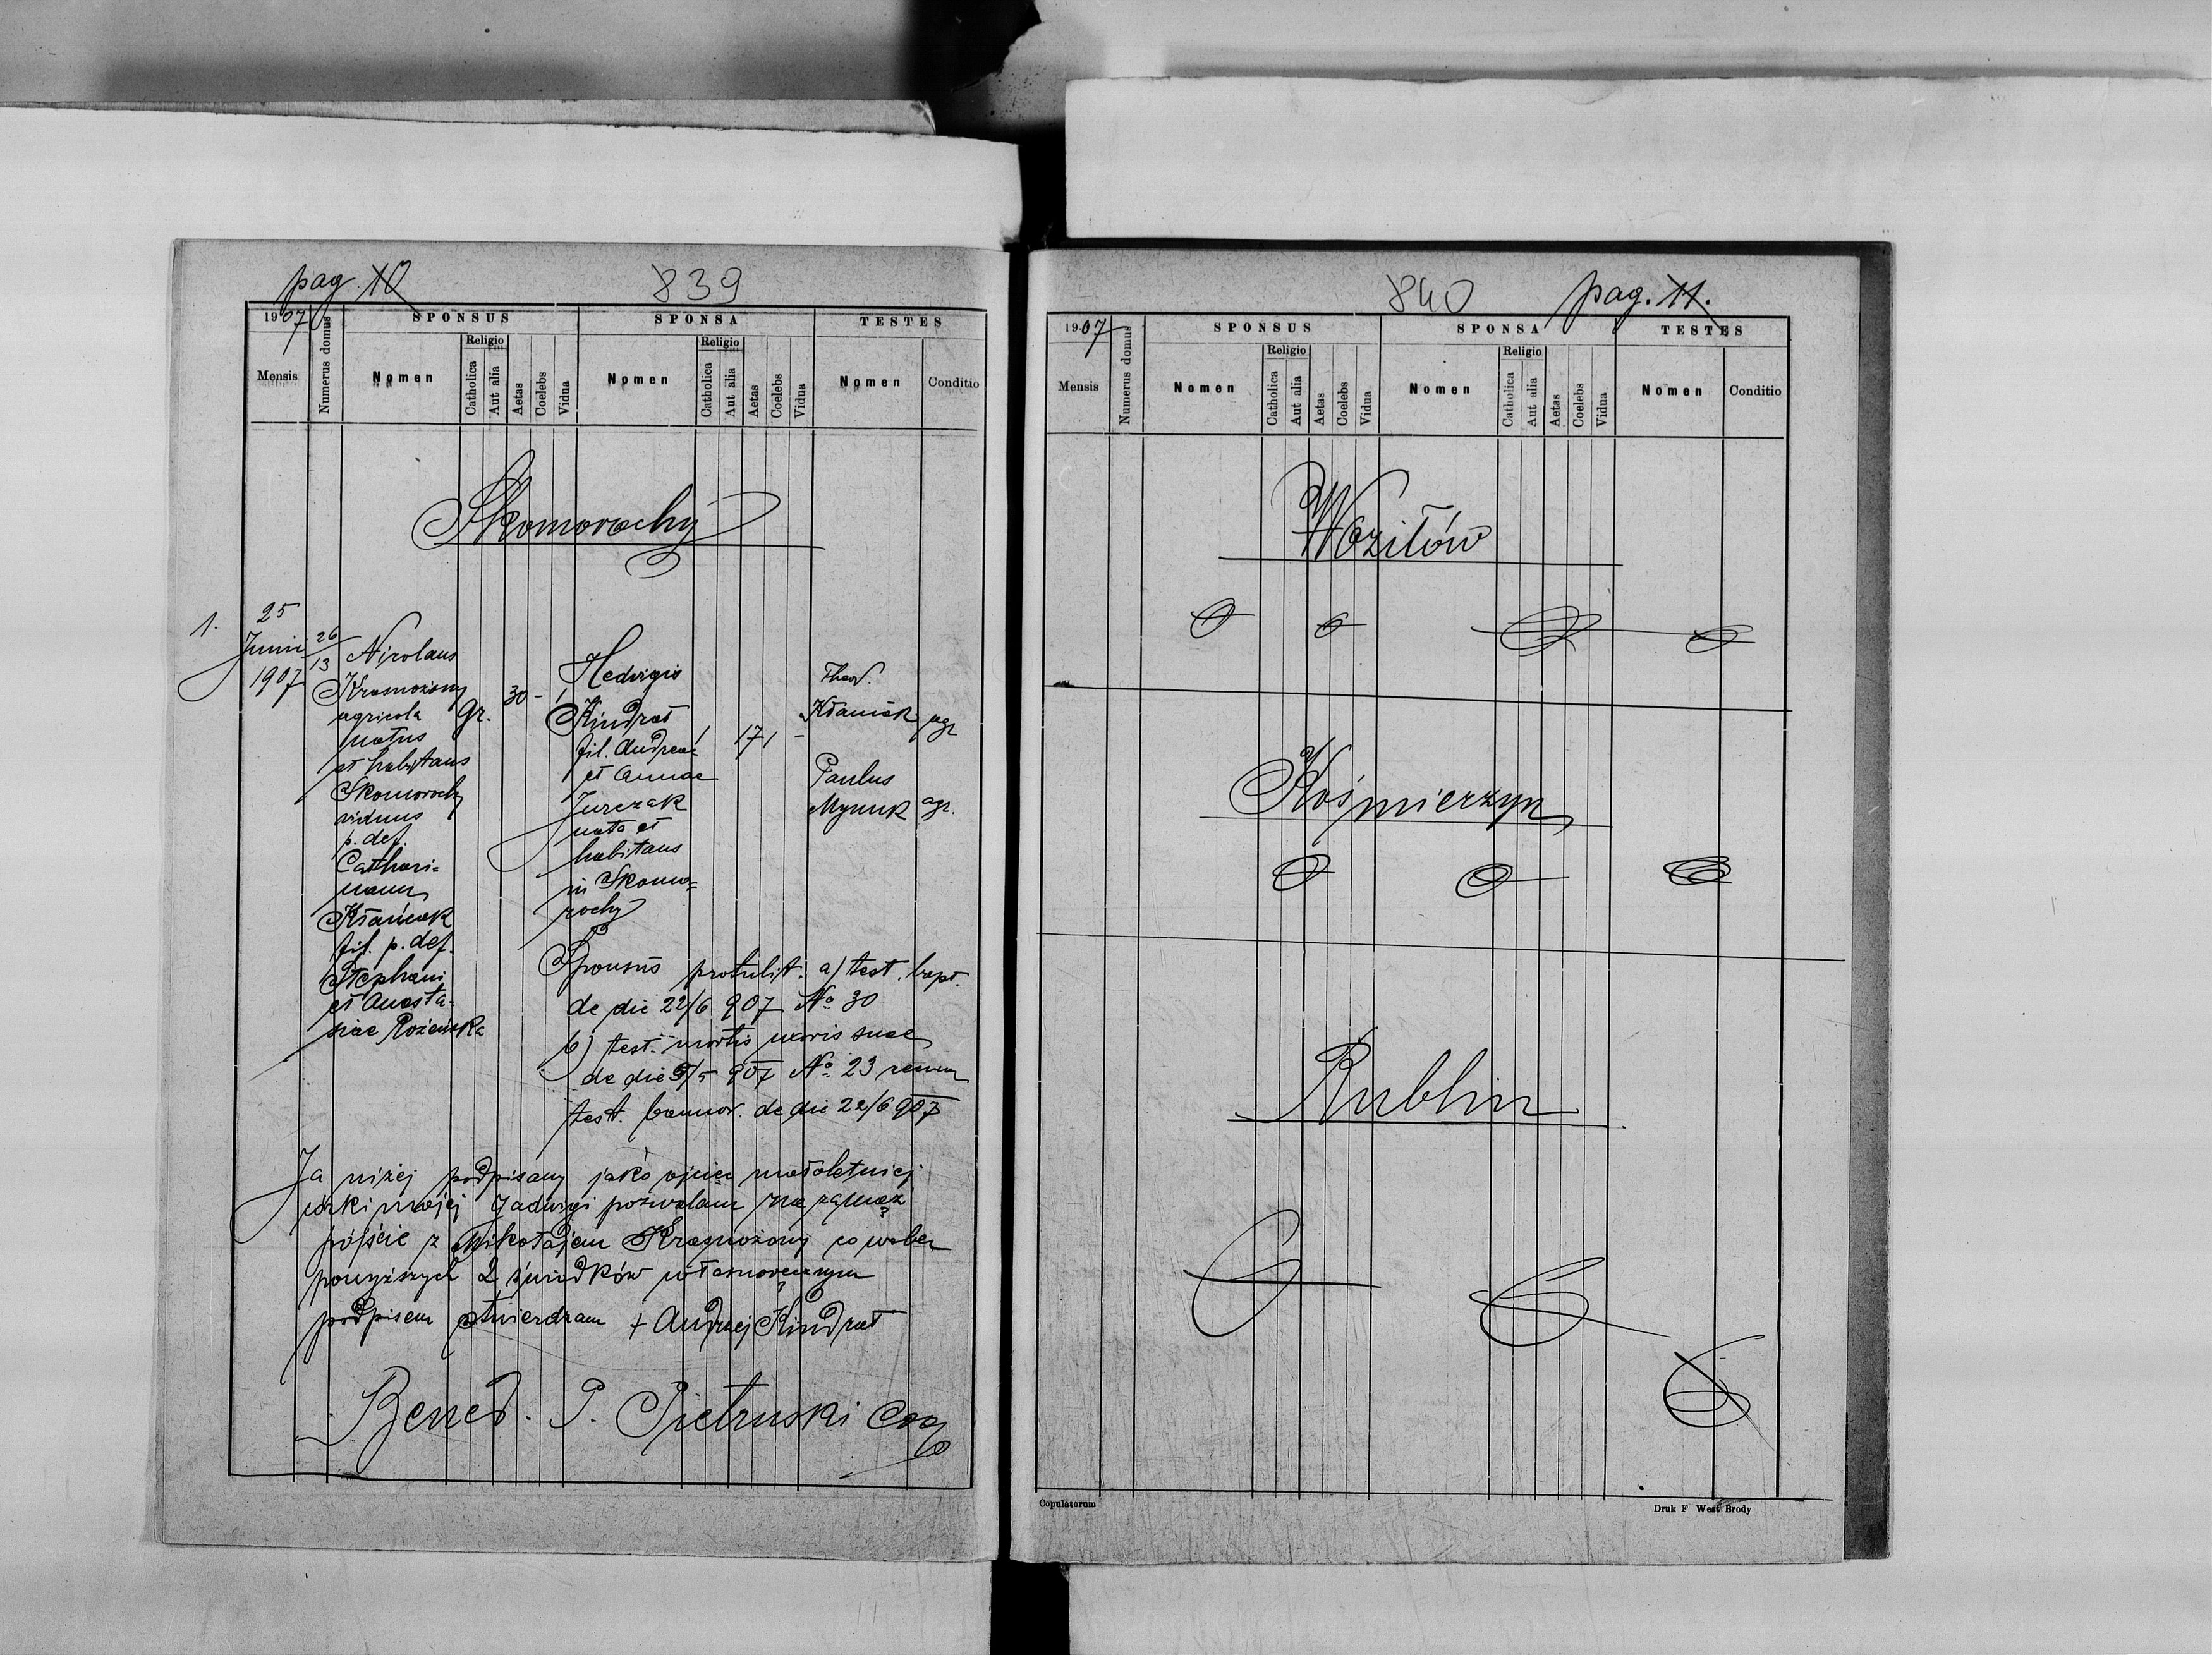 pag. 10
839
1907
SPONSUS
SPONSA
TESTES
Mensis
Numerus domus
Nomen
Religio
Catholica
Aut alia
Aetas
Coelebs
Vidua
Nomen
Religio
Catholica
Aut alia
Aetas
Coelebs
Vidua
Nomen
Conditio
Skomorochy
1.
25
Junii
1907
26/13
Nicolaus
Krasnożony
agricola
natus
et habitans
Skomorochy
viduus
p. def.
Cathari-
nam
Kłańcek
fil. p. def.
Stephani
et Anasta-
siae Rożeńska
gr.
30
Hedvigis
Kindrat
fil. Andreae
et Annae
Jurczak
nata et
habitans
in Skomo-
rochy
17
Theod.
agr
Paulus
Mynuk agr.
Sponsus protulit. a) test. bapt.
de die 22/6 907 No 30
b) test. mortis uxoris suae
de die 9/5 907 No 23
test. bannor. de die 22/6 907
Ja niżej podpisany jako ojciec małoletniej
córki mojej Jadwigi pozwalam na zamąż
pójście z Mikołajem Krasnożony co wobec
powyższych 2 świadków własnoręcznym
podpisem stwierdzam + Andrzej Kindrat
Bened. P. Pietruski Coop
840
pag. 11.
1907
SPONSUS
SPONSA
TESTES
Mensis
Numerus domus
Nomen
Religio
Catholica
Aut alia
Aetas
Coelebs
Vidua
Nomen
Religio
Catholica
Aut alia
Aetas
Coelebs
Vidua
Nomen
Conditio
Woziłów
Kośmierzyn
Rublin
Copulatorum
Druk F West Brody